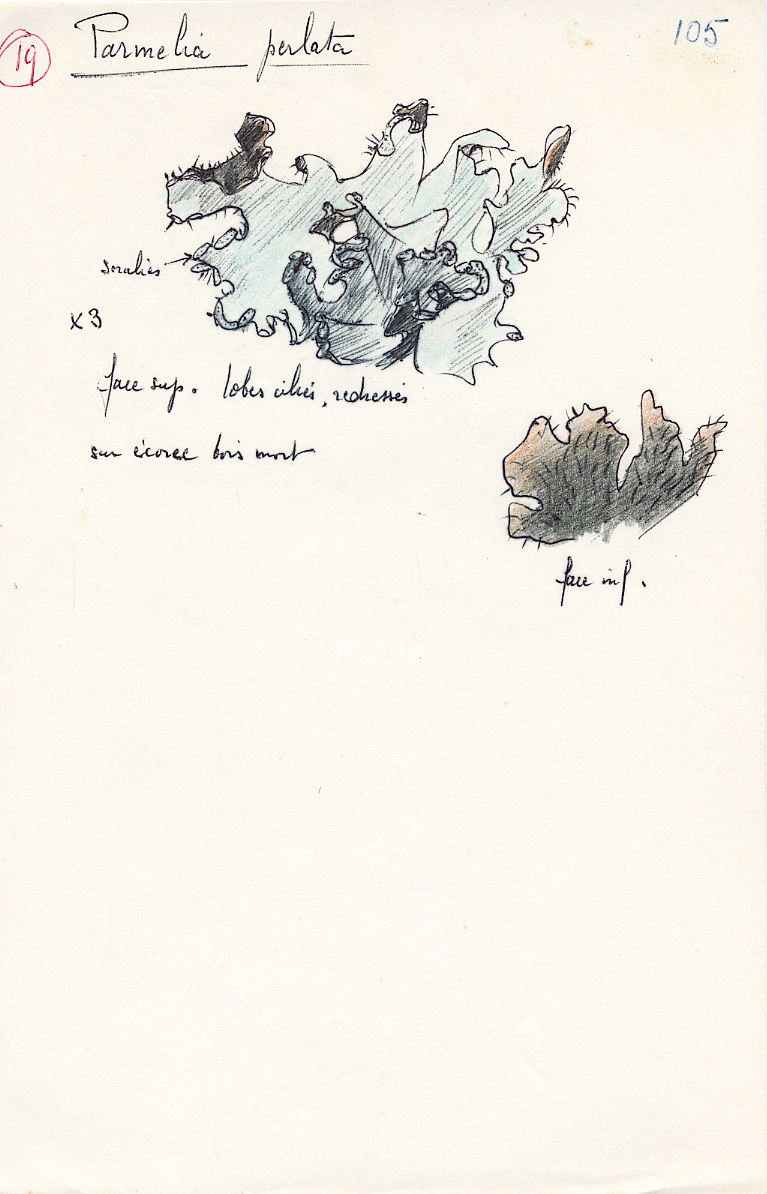 105
19
Parmelia perlata
soralies
x 3
face sup. lobes ciliés, redressés
sur écorce bois mort
face inf.